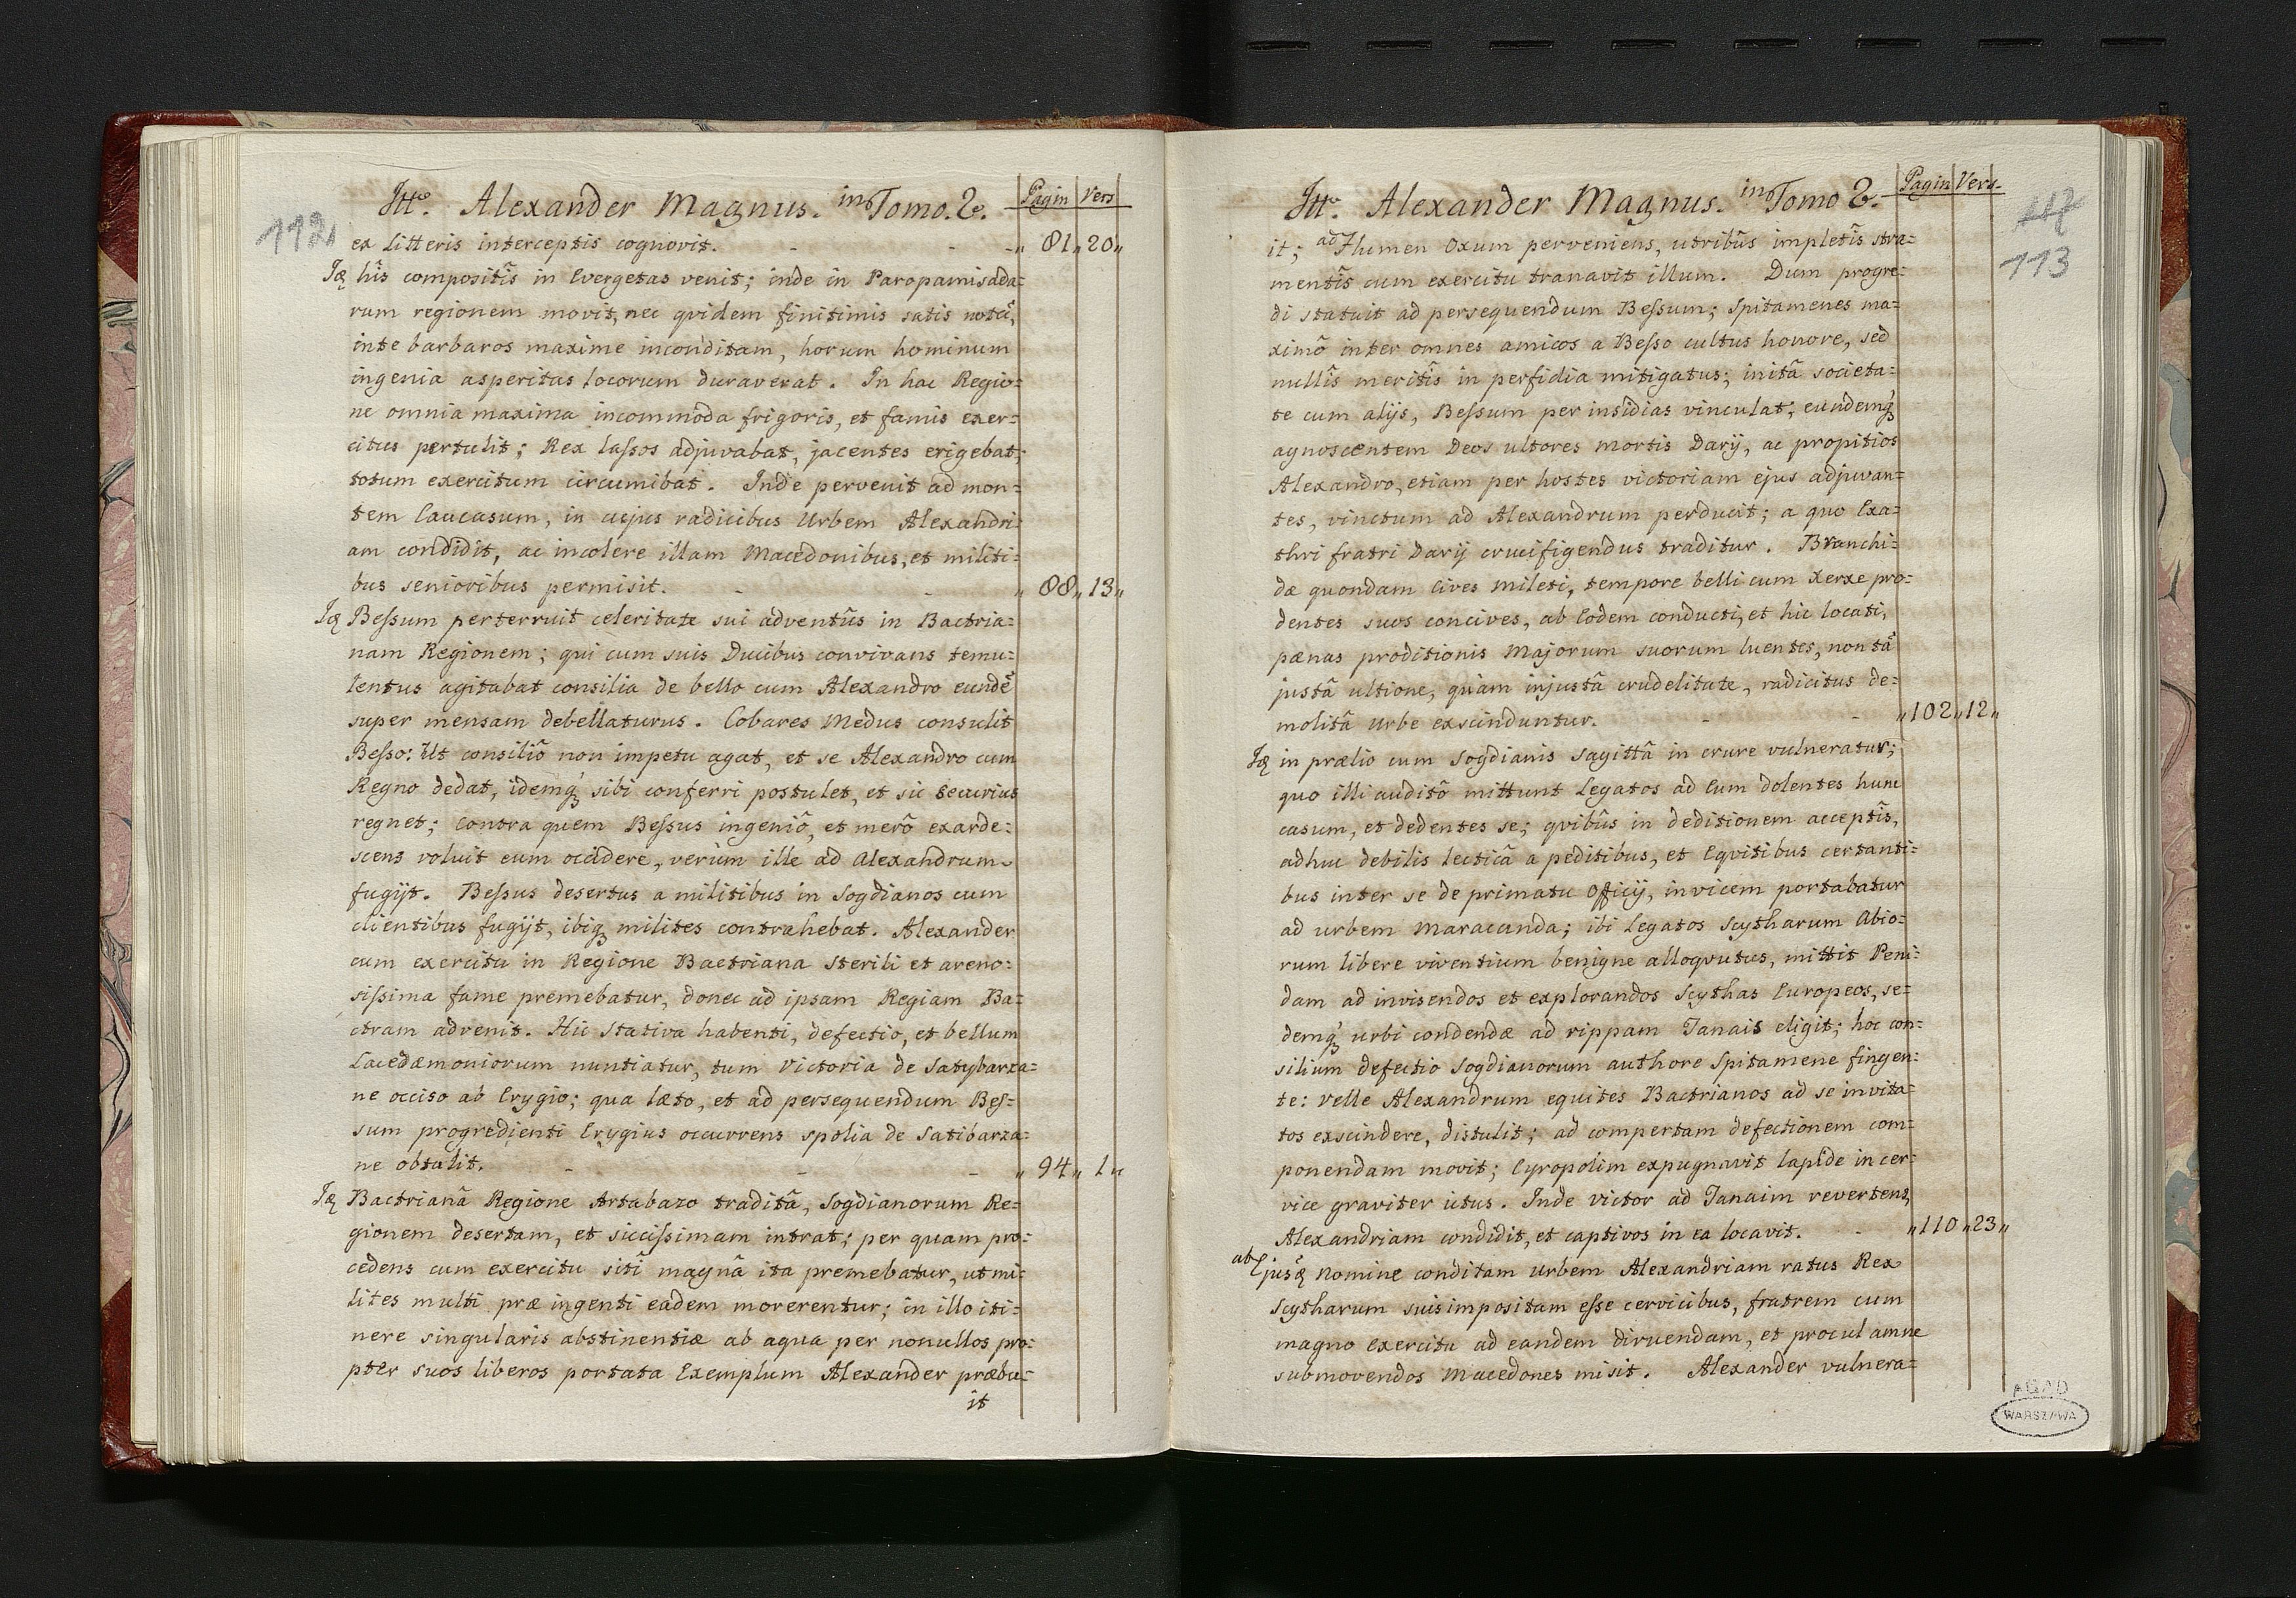 112
Itt͠e. Alexander Magnus. in Tomo. 2. Pagin Vers
ex litteris interceptis cognovit. - - - „ 81 „ 20 „
Iđ his compositîs in Evergetas venit; inde in Paropamisada=
rum regionem movit, nec qvidem finitimis satis notã,
inte barbaros maxime inconditam, horum hominum
ingenia asperitas locorum duraverat. In hac Regio=
ne omnia maxima incommoda frigoris, et famis exer=
citus pertulit; Rex laſsos adjuvabat, jacentes erigebat,
totum exercitum circumibat. Inde pervenit ad mon=
tem Caucasum, in cujus radicibus Urbem Alexandri=
am condidit, ac incolere illam Macedonibus, et militi=
bus senioribus permisit. - - „ 88 „ 13 „
Iđ Beſsum perterruit celeritate sui adventûs in Bactria=
nam Regionem; qui cum suis Ducibus convivans temu=
lentus agitabat consilia de bello cum Alexandro eundẽ
super mensam debellaturus. Cobares Medus consulit
Beſso: Ut consiliô non impetu agat, et se Alexandro cum
Regno dedat, idemq́ sibi conferri postulet, et sic securius
regnet; contra quem Beſsus ingeniô, et merô exarde=
scens voluit eum occidere, verùm ille ad Alexandrum
fugijt. Beſsus desertus a militibus in Sogdianos cum
clientibus fugijt, ibiq́ milites contrahebat. Alexander
cum exercitu in Regione Bactriana sterili et areno=
siſsima fame premebatur, donec ad ipsam Regiam Ba=
ctram advenit. Hic stativa habenti, defectio, et bellum
Lacedæmoniorum nuntiatur, tum Victoria de Satybarza=
ne occiso ab Erygio; qua læto, et ad persequendum Beſ=
sum progredienti Erygius occurrens spolia de Satibarza=
ne obtulit. - - - „ 94 „ 1 „
Iđ Bactrianâ Regione Artabazo traditâ, Sogdianorum Re=
gionem desertam, et sicciſsimam intrat; per quam pro=
cedens cum exercitu sitî magnâ ita premebatur, ut mi=
lites multi præ ingenti eadem morerentur; in illo iti=
nere singularis abstinentiæ ab aqua per nonullos pro=
pter suos liberos portata Exemplum Alexander præbu=
it
Itt͠e. Alexander Magnus. in Tomo 2. Pagin Vers.
113
it; ad Flumen Oxum perveniens, utribûs impletîs stra=
mentîs cum exercitu tranavit illum. Dum progre=
di statuit ad persequendum Beſsum; Spitamenes ma=
ximô inter omnes amicos a Beſso cultus honore, sed
nullîs meritîs in perfidia mitigatus; initâ societa=
te cum alijs, Beſsum per insidias vinculat; eundemq́
agnoscentem Deos ultores mortis Darij, ac propitios
Alexandro, etiam per hostes victoriam ejus adjuvan=
tes, vinctum ad Alexandrum perducit; a quo Exa=
thri fratri Darij crucifigendus traditur. Branchi=
dæ quondam Cives Mileti, tempore belli cum Xerxe pro=
dentes suos concives, ab Eodem conducti, et hic locati,
pænas proditionis Majorum suorum luentes, non tã
justâ ultione, quàm injustâ crudelitate, radicitus de=
molitâ urbe exscinduntur. - - „ 102 „ 12 „
Iđ in prælio cum Sogdianis sagittâ in crure vulneratur;
quo illi auditô mittunt Legatos ad Eum dolentes hunc
casum, et dedentes se; qvibûs in deditionem acceptîs,
adhuc debilis lecticâ a peditibus, et Eqvitibus certanti=
bus inter se de primatu Officij, invicem portabatur
ad urbem Maracanda; ibi Legatos Scytharum Abio=
rum libere viventium benigne alloqvutus, mittit Peni=
dam ad invisendos et explorandos Scythas Europeos, se=
demq́ urbi condendæ ad rippam Tanais eligit; hoc con=
silium defectio Sogdianorum authore Spitamene fingen=
te: velle Alexandrum equites Bactrianos ad se invita=
tos exscindere, distulit; ad compertam defectionem com=
ponendam movit; Cyropolim expugnavit lapide in cer=
vice graviter ictus. Inde victor ad Tanaim revertens,
Alexandriam condidit, et captivos in ea locavit. - „ 110 „ 23 „
ab Ejusđ nomine conditam Urbem Alexandriam ratus Rex
Scytharum suis impositam eſse cervicibus, fratrem cum
magno exercitu ad eandem diruendam, et procul amne
submovendos Macedones misit. Alexander vulnera=
AGAD
WARSZAWA